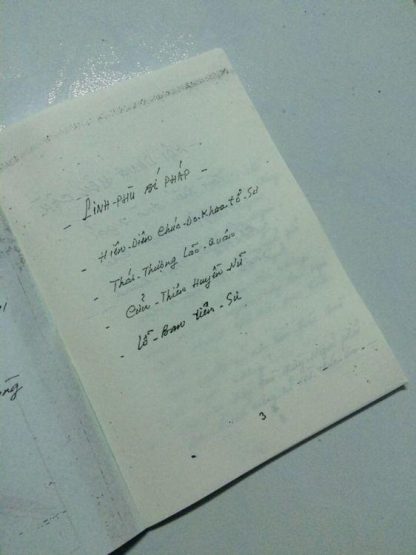 - LINH-PHÙ BÍ PHÁP -
- Hiển-Diên Chúc-Do-Khoa-Tổ-Sư
- Thái-Thượng Lão-Quân
- Cửu-Thiên Huyền-Nữ
- Lỗ-Ban Tiên-Sư
3